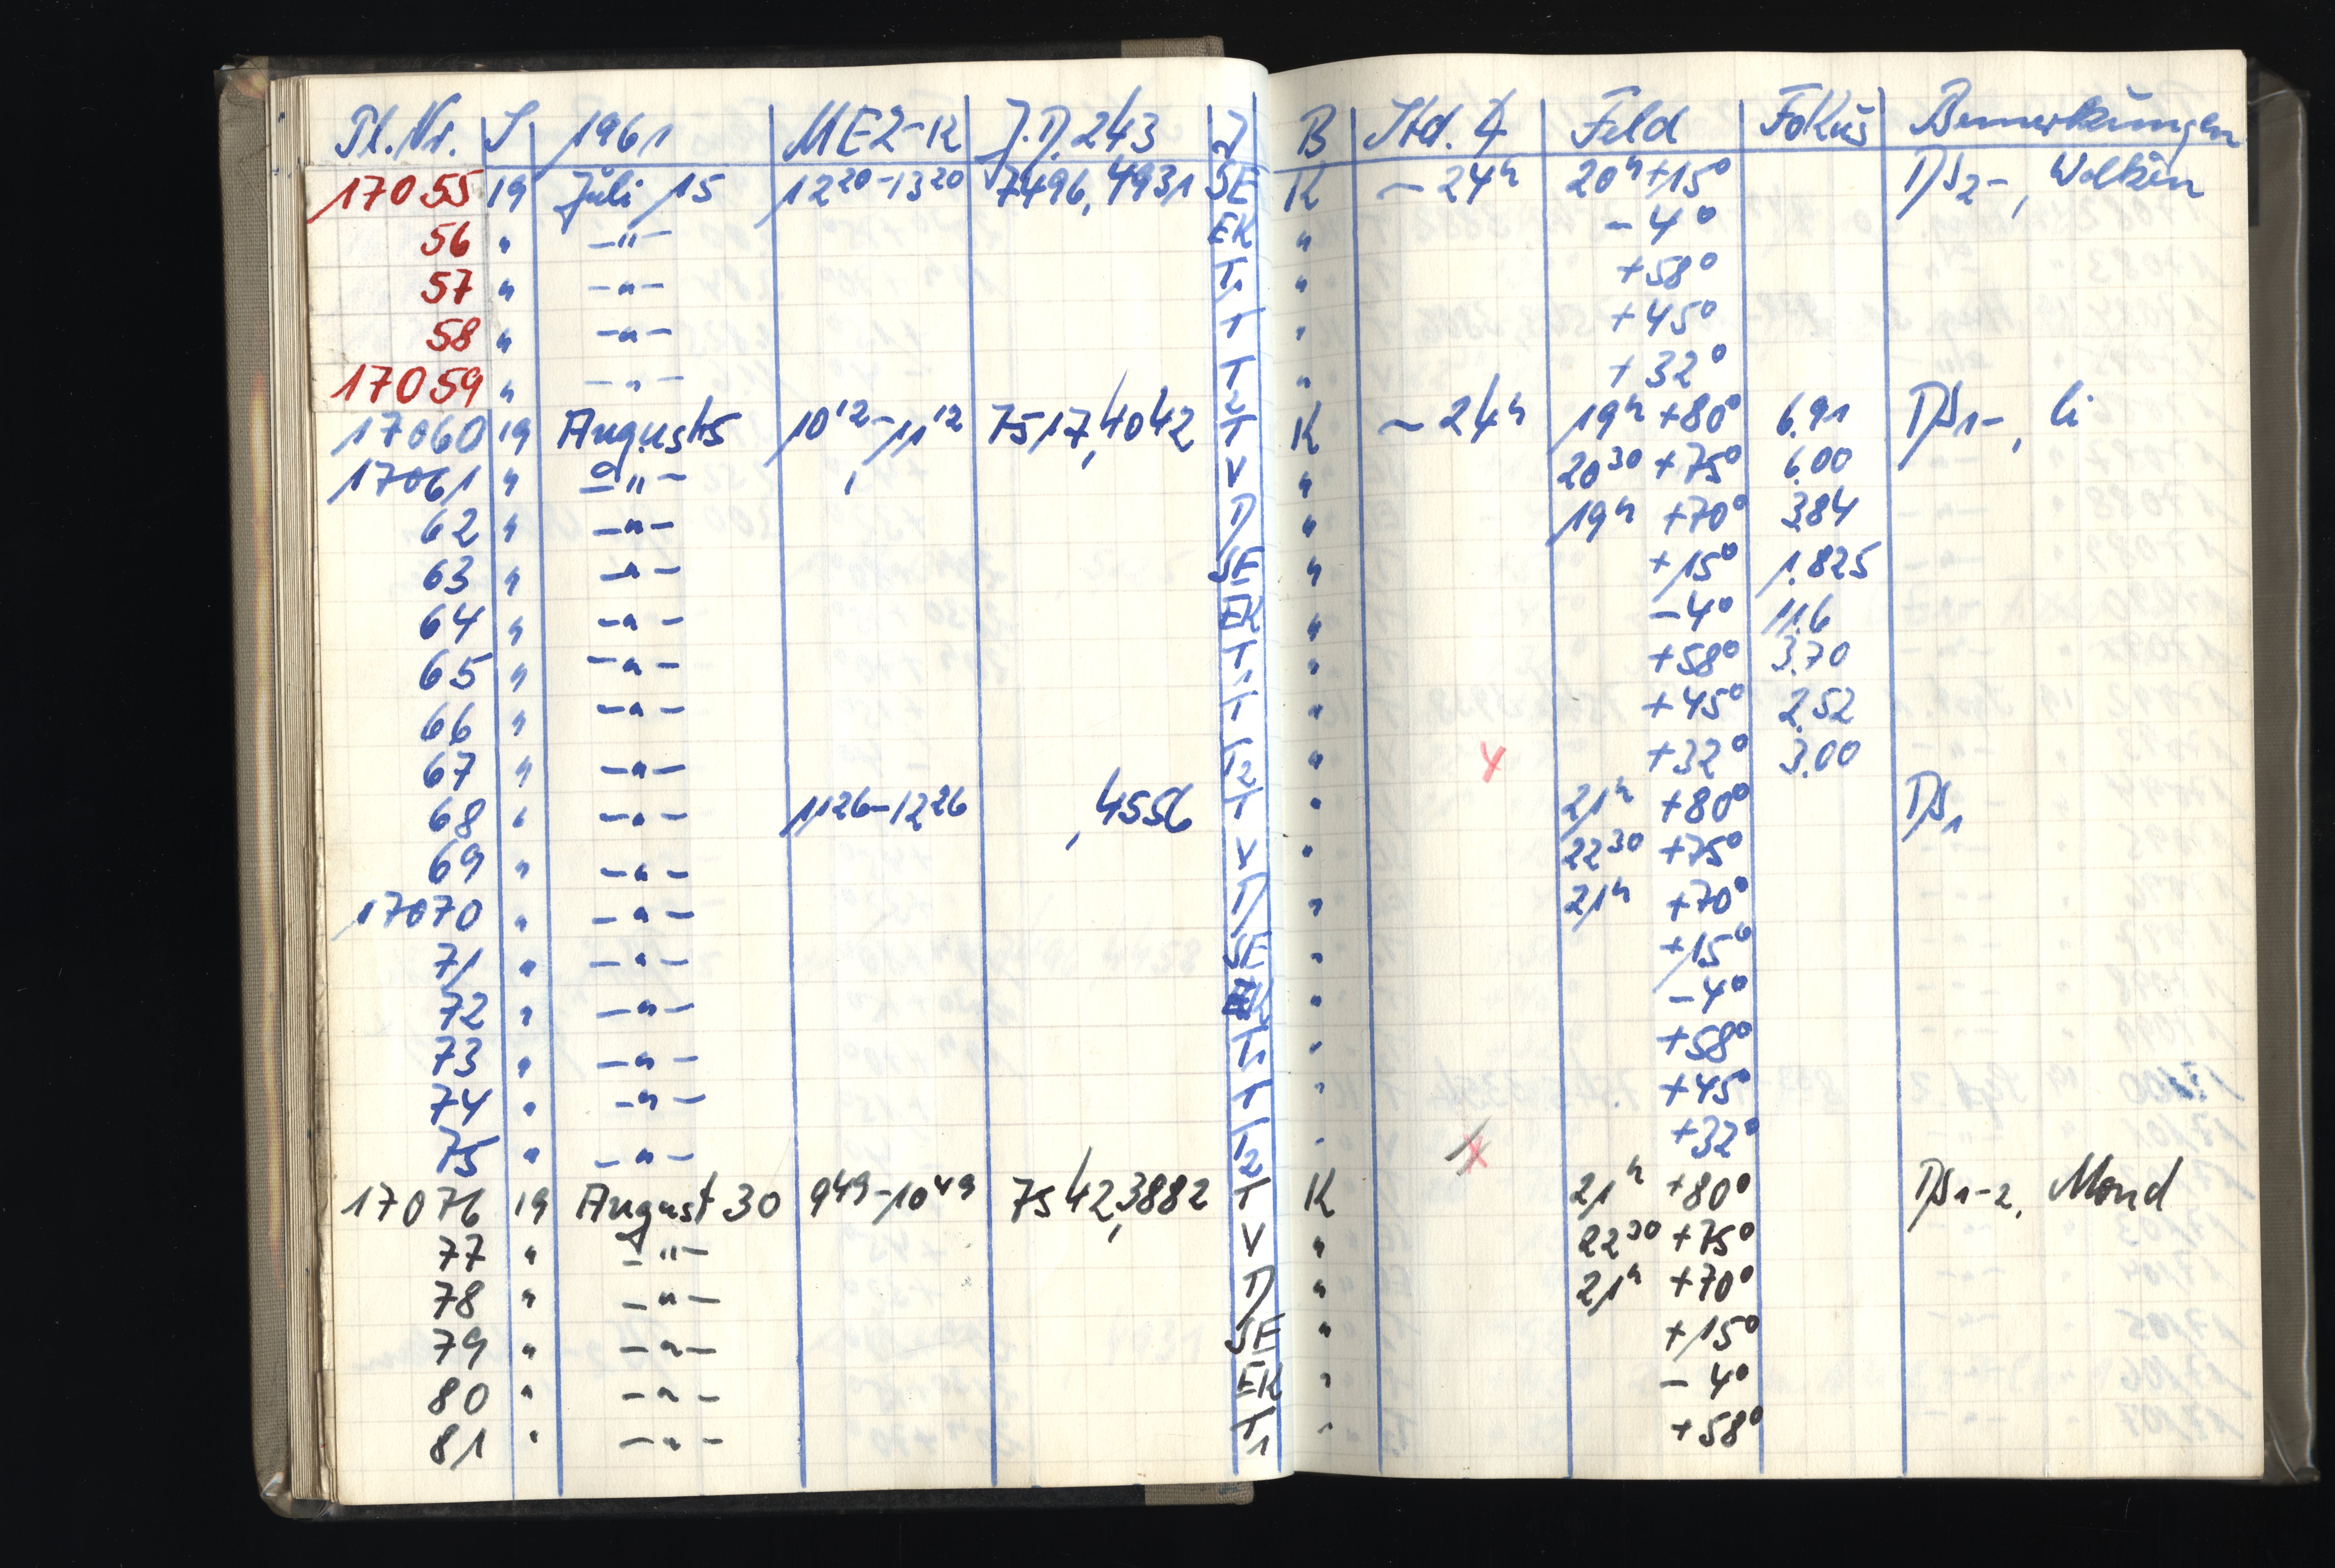 Pl. Nr. S 1961 MEZ-K J.D. 243 J B Std. ∢ Feld Fokus Bemerkungen
17055 19 Juli 15 12 20 - 13 20 7496,4931 SE K ~ 24h 20h +15° DS2-, Wolken
56 " -"- EK " -4°
57 " -"- T1 " +58°
58 " -"- T " +45°
17059 " -"- T2 " +32°
17060 19 August 5 10 12 - 11 12 7517,4042 T K ~ 24h 19h +80° 6.91 DS1-, Ci
17061 " -"- V " 20 30 +75° 6.00
62 " -"- D " 19h +70° 3.84
63 " -"- SE " +15° 1.825
64 " -"- EK " -4° 11.6
65 " -"- T1 " +58° 3.70
66 " -"- T " +45° 2.52
67 " -"- T2 " +32° 3.00
68 " -"- 11 26 - 12 26 ,4556 T " 21h +80° DS1
69 " -"- V " 22 30 +75°
17070 " -"- D " 21h +70°
71 " -"- SE " +15°
72 " -"- EK " -4°
73 " -"- T1 " +58°
74 " -"- T " +45°
75 " -"- T2 " +32°
17076 19 August 30 9 49 - 10 49 7542,3882 T K 21h +80° DS1-2, Mond
77 " -"- V " 22 30 +75°
78 " -"- D " 21h +70°
79 " -"- SE " +15°
80 " -"- EK " -4°
81 " -"- T1 " +58°